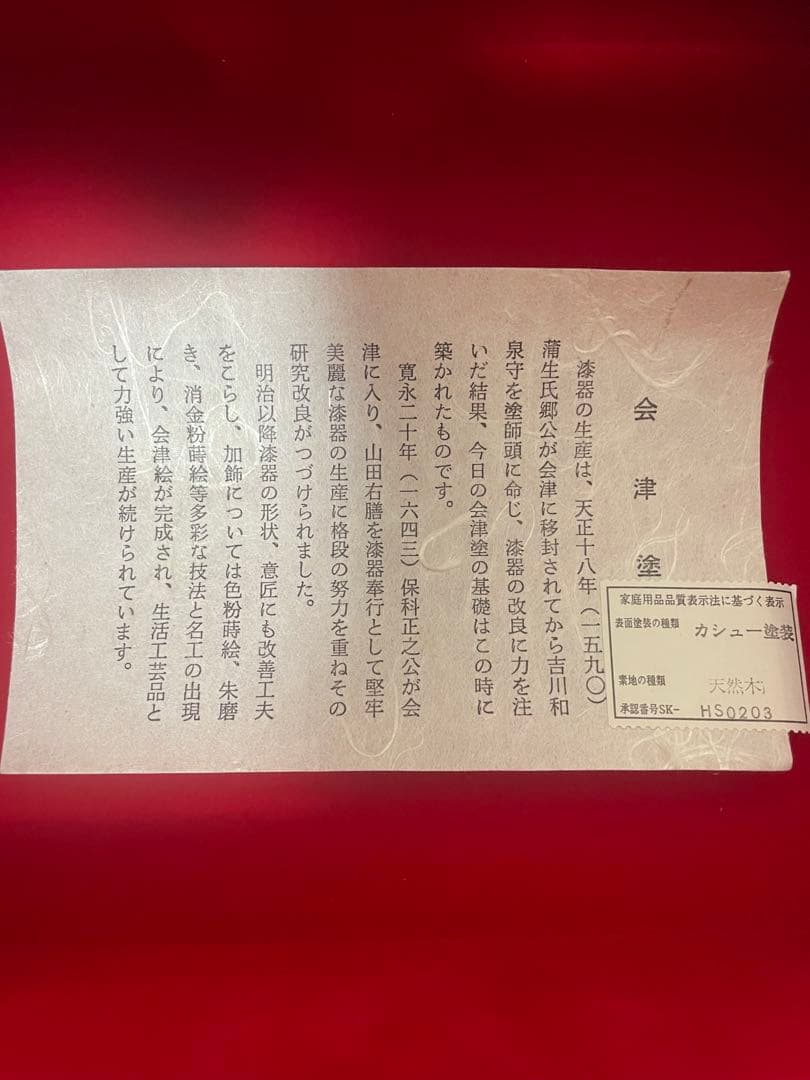 会津塗
漆器の生産は、天正十八年(一五九〇)
蒲生氏郷公が会津に移封されてから吉川和
泉守を塗師頭に命じ、漆器の改良に力を注
いだ結果、今日の会津塗の基礎はこの時に
築かれたものです。
寛永二十年(一六四三)保科正之公が会
津に入り、山田右膳を漆器奉行として堅牢
美麗な漆器の生産に格段の努力を重ねその
研究改良がつづけられました。
明治以降漆器の形状、意匠にも改善工夫
をこらし、加飾については色粉蒔絵、朱磨
き、消金粉蒔絵等多彩な技法と名工の出現
により、会津絵が完成され、生活工芸品と
して力強い生産が続けられています。
家庭用品品質表示法に基づく表示
表面塗装の種類 カシュー塗装
素地の種類 天然木
承認番号SK- HS0203